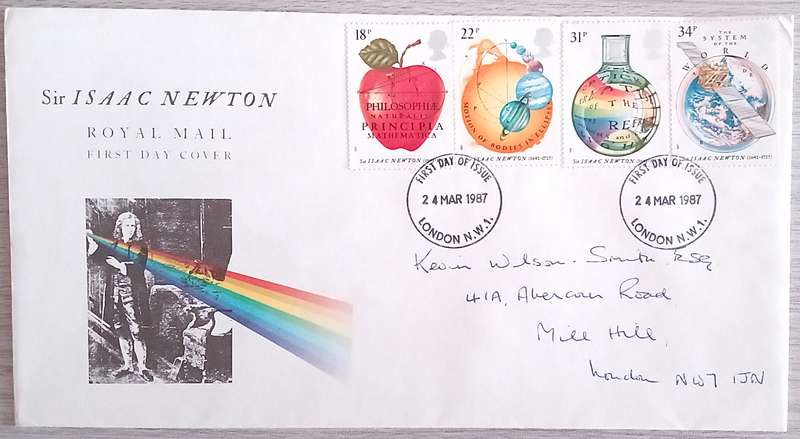 18P
22P
31P
34P
THE
SYSTEM
OF THE
WORLD
PHILOSOPHIÆ
NATURALIS
PRINCIPIA
MATHEMATICA
MOTION OF BODIES IN ELLIPSES
OF THE
Sir ISAAC NEWTON (1642-1727)
ISAAC NEWTON (1642-1727)
Sir ISAAC NEWTON (1642-1727)
ISAAC NEWTON (1642-1727)
Sir ISAAC NEWTON
ROYAL MAIL
FIRST DAY COVER
FIRST DAY OF ISSUE
24 MAR 1987
LONDON N.W.1.
FIRST DAY OF ISSUE
24 MAR 1987
LONDON N.W.1.
Kevin Wilson-Smith Esq
41A, Abercorn Road
Mill Hill,
London NW7 1JN